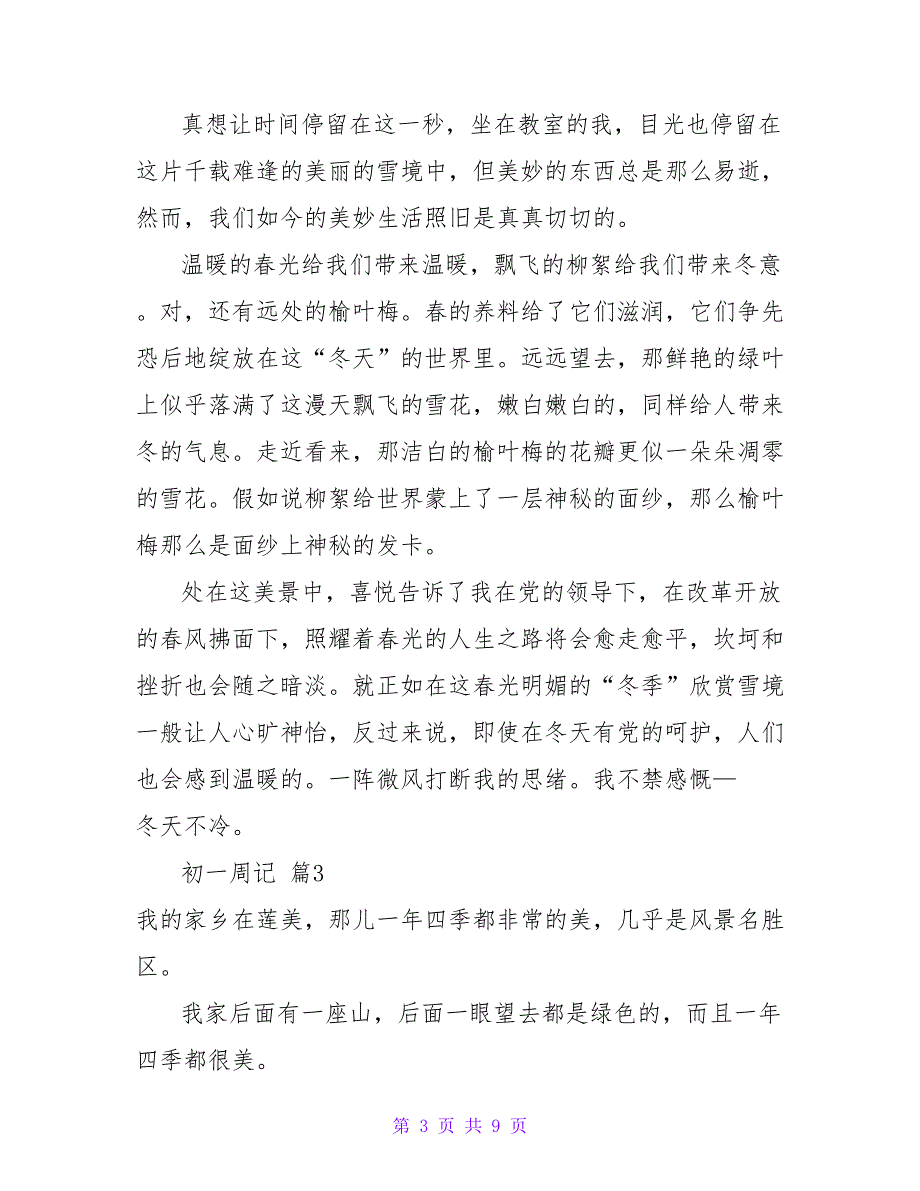 真想让时间停留在这一秒，坐在教室的我，目光也停留在
这片千载难逢的美丽的雪境中，但美妙的东西总是那么易逝，
然而，我们如今的美妙生活照旧是真真切切的。
温暖的春光给我们带来温暖，飘飞的柳絮给我们带来冬意
。对，还有远处的榆叶梅。春的养料给了它们滋润，它们争先
恐后地绽放在这“冬天”的世界里。远远望去，那鲜艳的绿叶
上似乎落满了这漫天飘飞的雪花，嫩白嫩白的，同样给人带来
冬的气息。走近看来，那洁白的榆叶梅的花瓣更似一朵朵凋零
的雪花。假如说柳絮给世界蒙上了一层神秘的面纱，那么榆叶
梅那么是面纱上神秘的发卡。
处在这美景中，喜悦告诉了我在党的领导下，在改革开放
的春风拂面下，照耀着春光的人生之路将会愈走愈平，坎坷和
挫折也会随之暗淡。就正如在这春光明媚的“冬季”欣赏雪境
一般让人心旷神怡，反过来说，即使在冬天有党的呵护，人们
也会感到温暖的。一阵微风打断我的思绪。我不禁感慨—
冬天不冷。
初一周记 篇3
我的家乡在莲美，那儿一年四季都非常的美，几乎是风景名胜
区。
我家后面有一座山，后面一眼望去都是绿色的，而且一年
四季都很美。
第 3 页 共 9 页